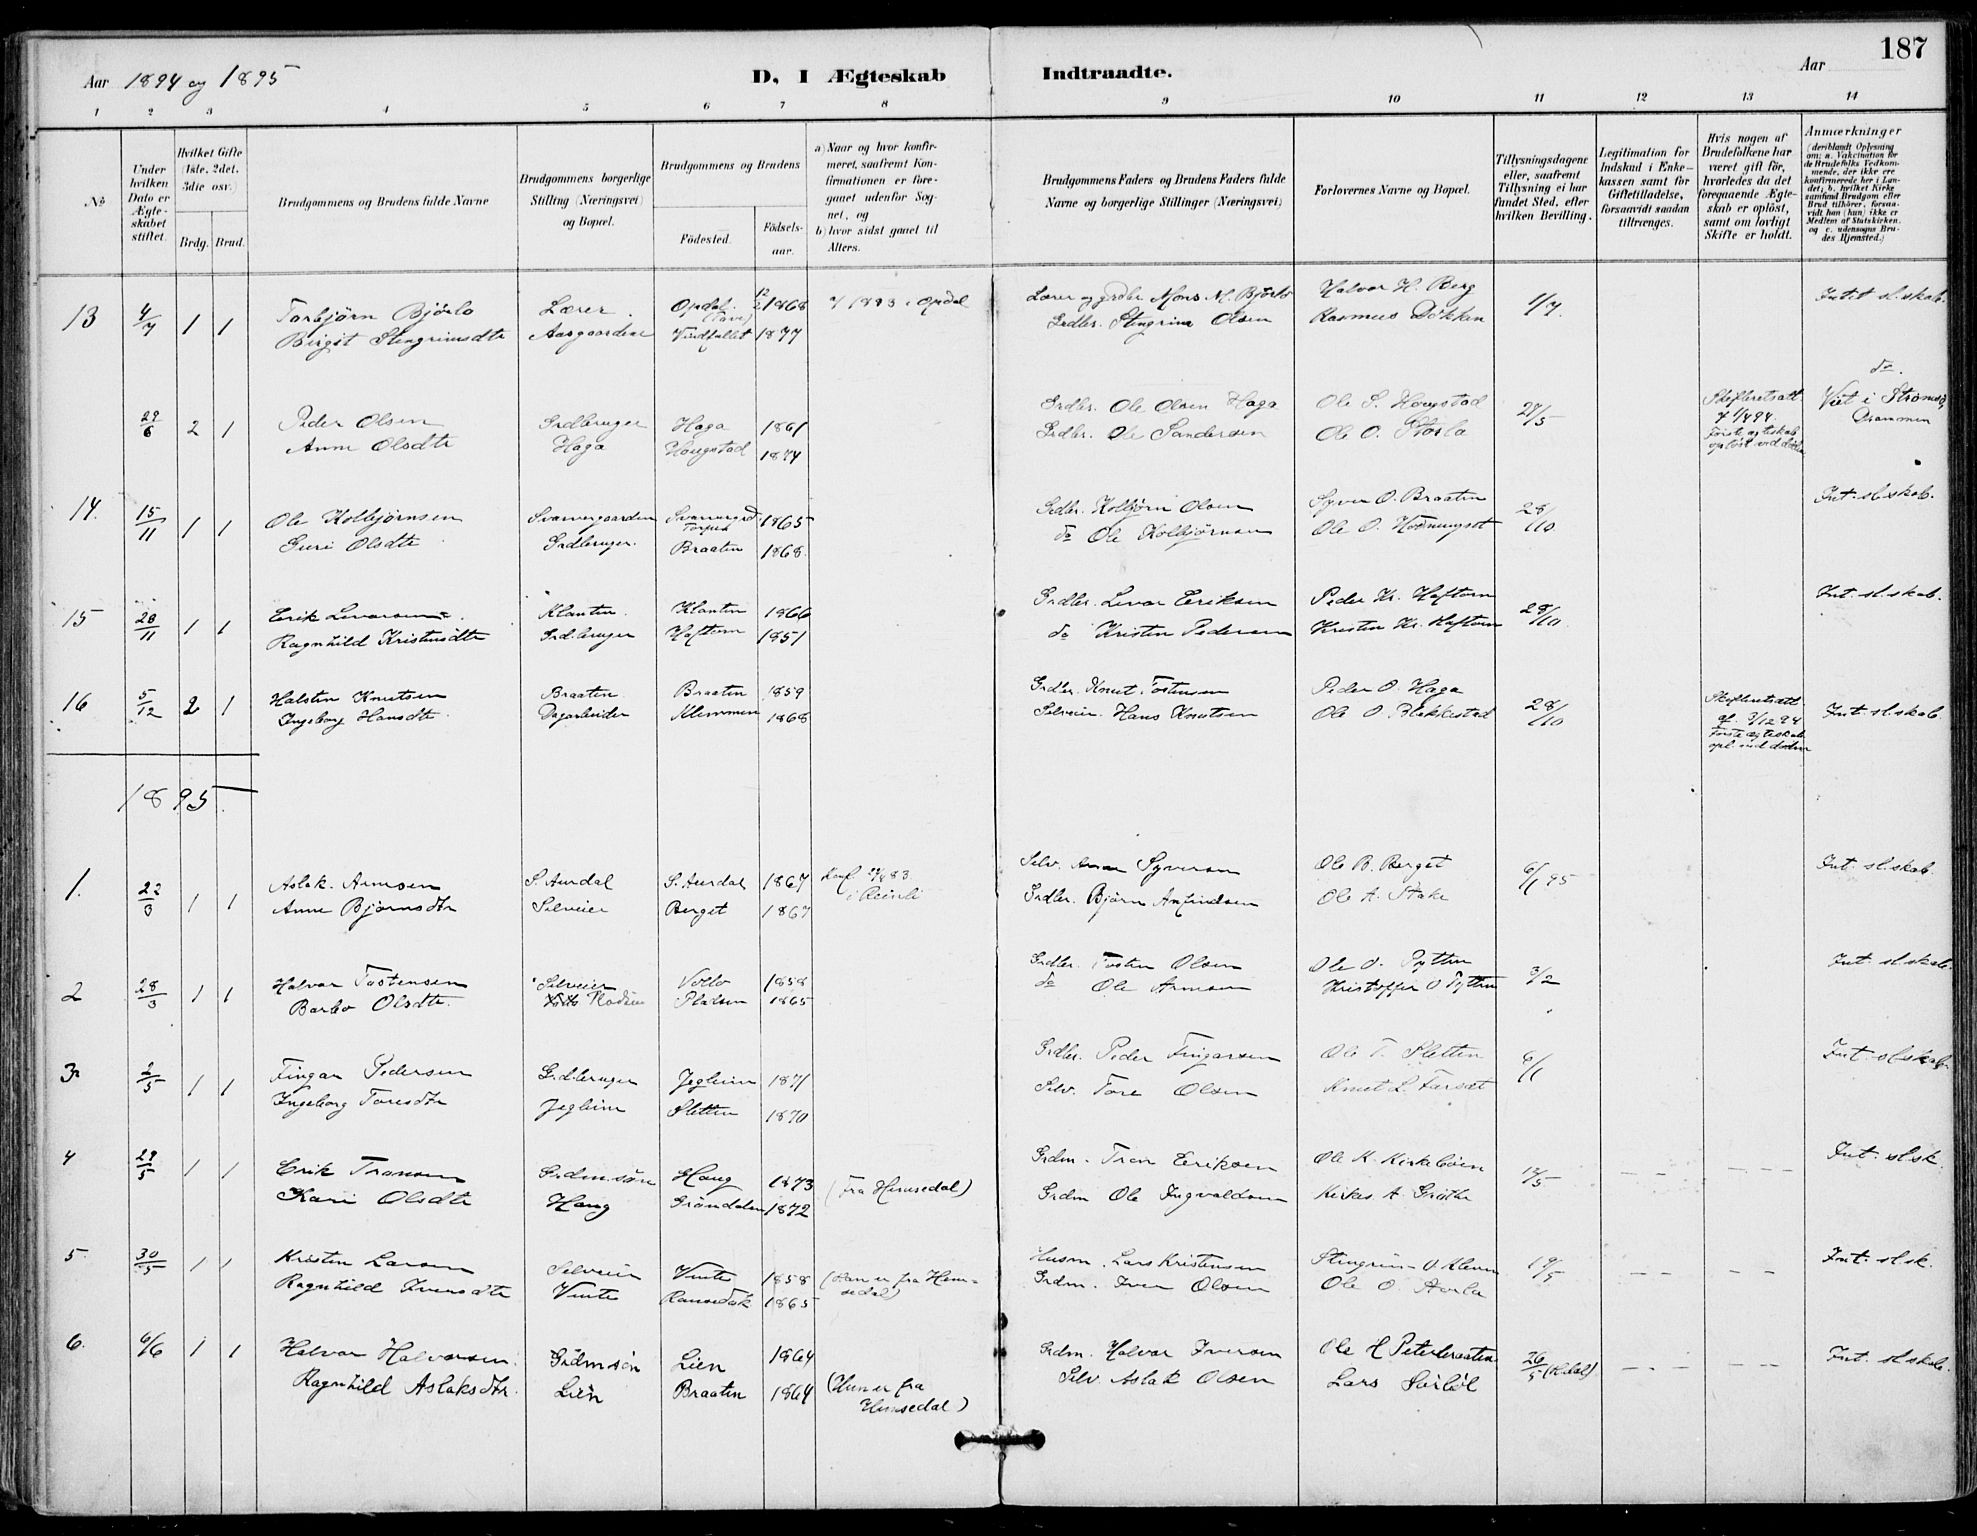 187
Aar 1894 og 1895 D. I Ægteskab Indtraadte. Aar
1 2 3 4 5 6 7 8 9 10 11 12 13 14
№
Under hvilken Dato er Ægteskabet stiftet.
Hvilket Gifte (1ste, 2det, 3die osv.)
Brdg. Brud.
Brudgommens og Brudens fulde Navne
Brudgommens borgerlige Stilling (Næringsvei) og Bopæl.
Brudgommens og Brudens
Födested. Födselsaar.
a) Naar og hvor konfirmeret, saafremt Konfirmationen er foregaaet udenfor Sognet, og
b) hvor sidst gaaet til Alters.
Brudgommens Faders og Brudens Faders fulde Navne og borgerlige Stillinger (Næringsvei)
Forlovernes Navne og Bopæl.
Tillysningsdagene eller, saafremt Tillysning ei har fundet Sted, efter hvilken Bevilling.
Legitimation for Indskud i Enkekassen samt for Giftetilladelse, forsaavidt saadan tiltrænges.
Hvis nogen af Brudefolkene har været gift för, hvorledes da det foregaaende Ægteskab er oplöst, samt om lovligt Skifte er holdt.
Anmærkninger (deriblandt Oplysning om: a. Vakcination for de Brudefolks Vedkommende, der ikke ere konfirmerede her i Landet; b. hvilket Kirkesamfund Brudgom eller Brud tilhörer, forsaavidt han (hun) ikke er Medlem af Statskirken, og c. udensogns Brudes Hjemsted.)
13 4/7 1 1 Torbjörn Björlo Lærer Opdal 12/2 1868 1883 i Opdal Lærer og grdbr. Mons M. Björlo Halvor H. Berg 1/7 Int. sl.skab.
Birgit Stengrimsdtr Aasgaardene Vindfallet 1877 Grdbr. Stengrim Olsen Rasmus Dökken
29/6 2 1 Peder Olsen Grdbruger Haga 1861 Grdbr. Ole Olsen Haga Ole S. Hougstad 27/5 Skifteretsatt Viet i Strömsö, Drammen
Anne Olsdtr Haga Hougstad 1874 Grdbr. Ole Sandersen Ole O. Storla Förste egteskab oplöst ved död
14. 15/11 1 1 Ole Kolbjörnsen Svarvergaarden 1865 Grdbr. Kolbjörn Olsen Syver O. Braaten 28/10 Int. sl.skab.
Guri Olsdtr Grdbruger. Braaten 1868. do Ole Kolbjörnsen
15 28/11 1 1 Erik Levorsen Klanten Klanten 1866 Grdbr. Levor Eriksen Peder Kr. Haftorn 28/10 Int. sl.skab.
Ragnhild Kristensdtr Grdbruger Haftorn 1851 do Kristen Pedersen Kristen Kr. Haftorn
16 5/12 2 1 Halsten Knutsen Braaten Braaten 1859 Grdbr. Knut Tostensen Peder O. Haga 28/10 Skifteretsatt Int. sl.skab
Ingeborg Hansdtr. Dagarbeider Klemmen 1868 Selveier. Hans Knutsen Ole O. Blakkestad Förste ægteskab opl. ved döden
1895.
1. 22/3 1 1 Aslak. Arnesen S. Aurdal S. Aurdal 1867 Selv. Arne Syversen Ole B. Berget 6/1 95 Int. sl.skab.
Anne Björnsdtr Selveier Berget 1867 Grdbr. Björn Anfindsen Ole A. Stake
2 28/3 1 1 Halvor Tostensen Selveier Volla 1858 Grdbr. Tosten Olsen Ole O. Pytten 3/2 Int. sl.skab.
Barbo Olsdtr. Pladsen 1865 do Ole Arnesen Kristoffer O Pytten
3 2/5 1 1 Fingar Pedersen Grdbruger Jegleim 1871 Grdbr. Peder Fingarsen Ole T. Sletten 6/1 Int. sl.skab.
Ingeborg Toresdtr Jegleim Sletten 1870 Selv. Tore Olsen Knut L. Farset
4 29/5 1 1 Erik Tronsen Grdmsön Haug 1873 (Fra Hemsedal) Grdm. Tron Eriksen Ole K. Kirkeböen 12/5 Int. sl.sk.
Kari Olsdtr Haug Gröndalen 1872 Grdm Ole Ingvaldsen
5. 30/5 1 1 Kristen Larsen Selveier Vinte 1858 (Han er fra Hemsedal) Husm. Lars Kristensen Stengrim O. Kleven 19/5 Int. sl.sk.
Ragnhild Iversdtr Vinte 1865 Grdm. Iver Olsen Ole O. Aarla
6. 6/6 1 1 Halvor Halvorsen Grdmsön Lien 1864 Grdm. Halvor Iversen Ole H Petersbraaten 26/5 (H.dal) Int. sl.skab.
Ragnhild Aslaksdtr. Lien Braaten 1864 (Hun er fra Hemsedal) Selv Aslak Olsen Lars